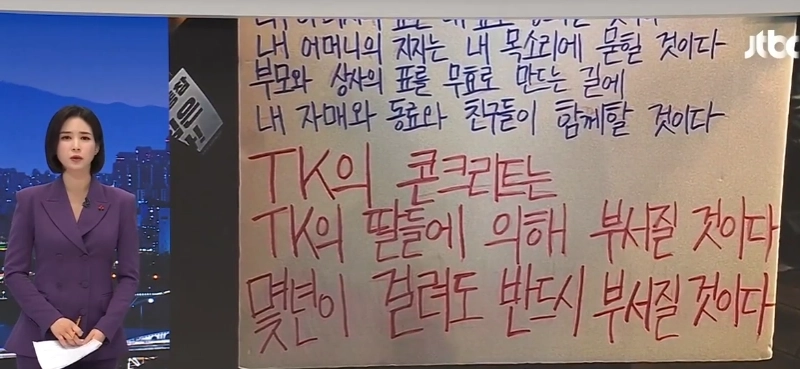 jtbc
내 어머니의 지지는 내 목소리에 묻힐 것이다
부모와 상사의 표를 무효로 만드는 길에
내 자매와 동료와 친구들이 함께할 것이다
TK의 콘크리트는
TK의 딸들에 의해 부서질 것이다
몇년이 걸려도 반드시 부서질 것이다